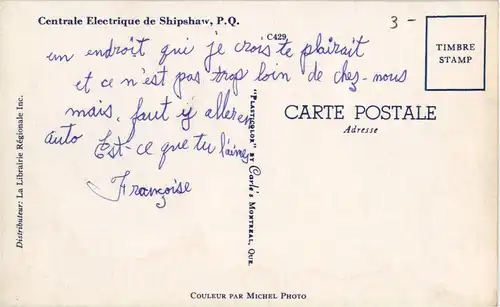 Centrale Electrique de Shipshaw, P.Q.
C429
3 -
TIMBRE
STAMP
un endroit qui je crois te plairait
et ce n'est pas trop loin de chez-nous
mais, faut y aller en
auto Est-ce que tu l'aimes
Françoise
CARTE POSTALE
Adresse
"PLASTICHROM" BY Carle's MONTREAL, QUE.
Distributeur: La Librairie Régionale Inc.
COULEUR PAR MICHEL PHOTO